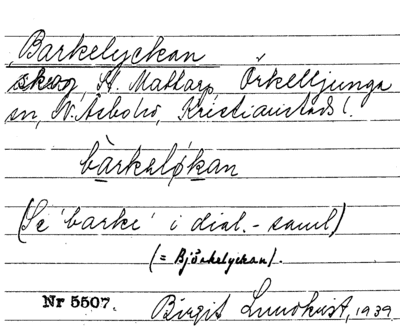 Barkelyckan
skog, St. Mattarp, Örkelljunga
sn, N. Åsbohd, Kristianstads l.
bàrkalø̀kan
(Se 'barke' i dial.-saml)
(= Björkelyckan).
Nr 5507. Birgit Lundkvist, 1939